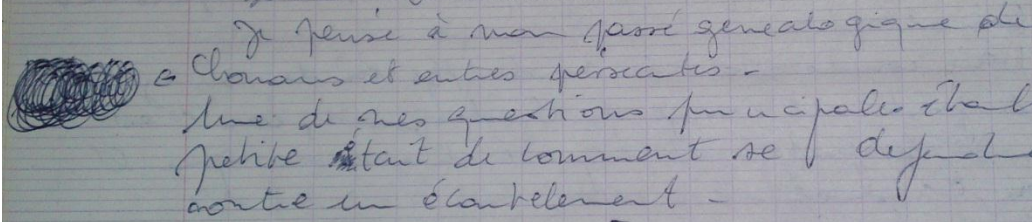 Je pense à mon passé genealogique de
Chouans et autres persecutés -
Une de mes questions principales étant
petite était de comment se defendre
contre un écartelement -